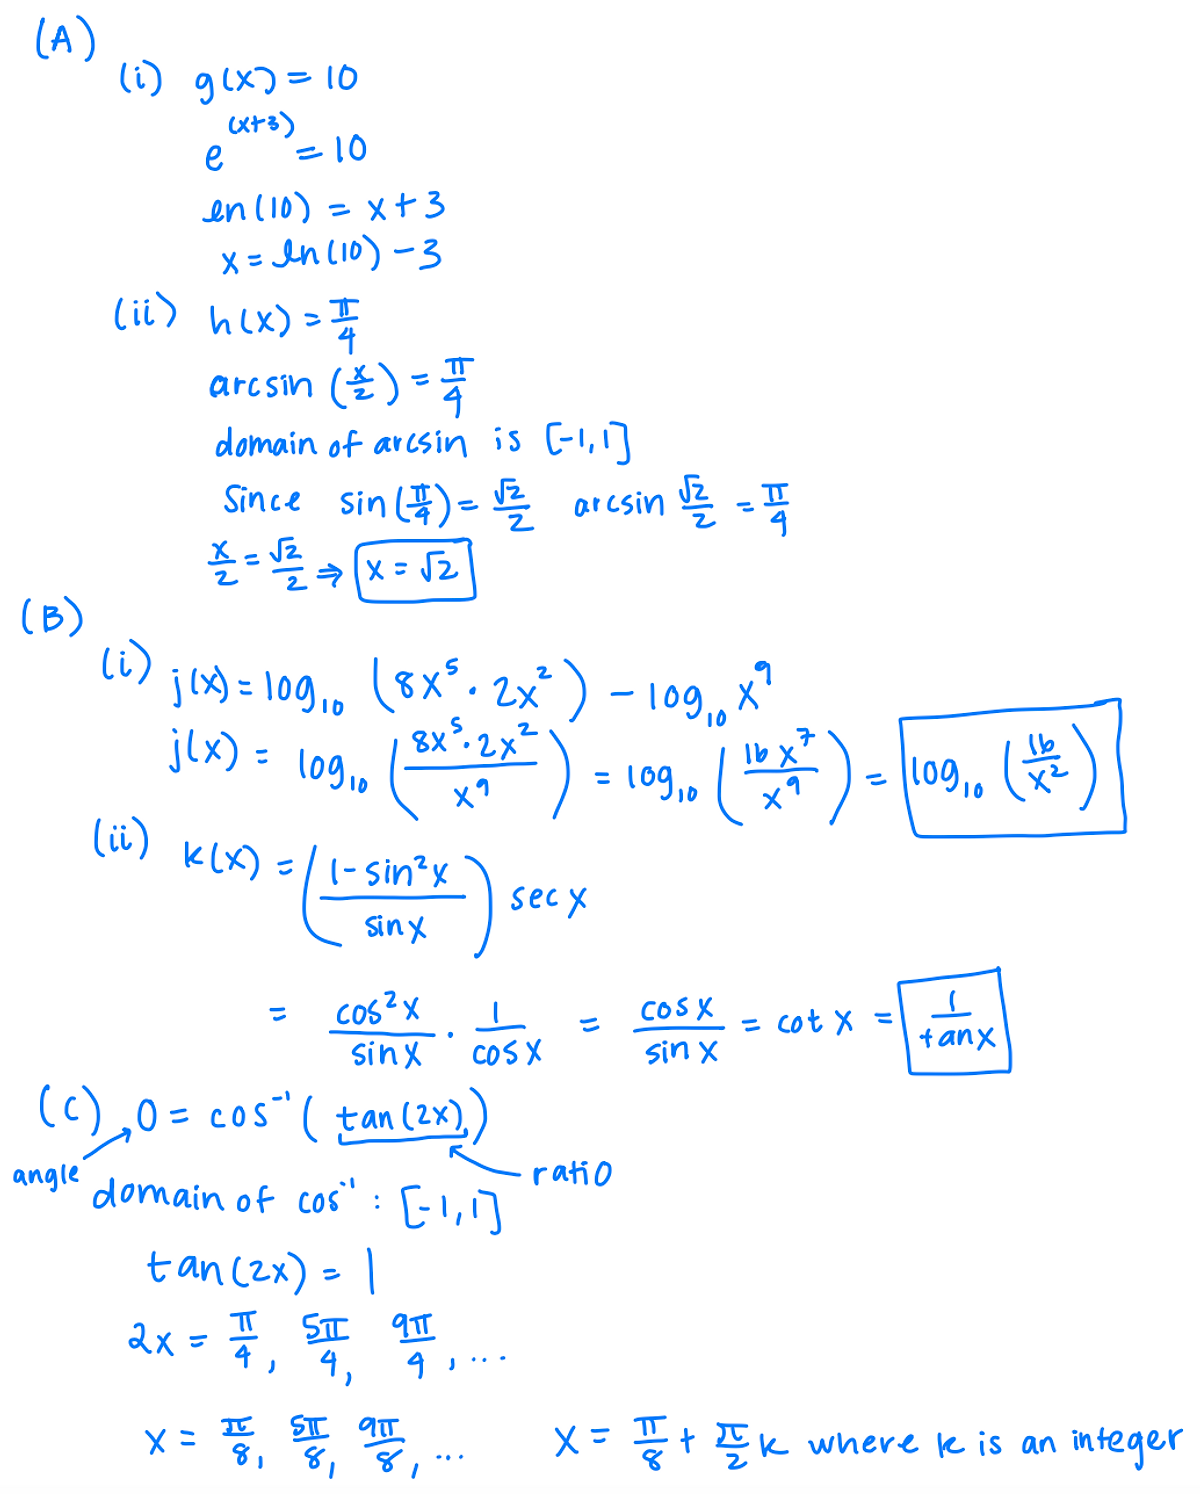 (A)
(i) g(x) = 10
e^(x+3) = 10
ln(10) = x + 3
x = ln(10) - 3
(ii) h(x) = π/4
arcsin (x/2) = π/4
domain of arcsin is [-1,1]
Since sin(π/4) = √2/2 arcsin √2/2 = π/4
x/2 = √2/2 ⇒ x = √2
(B)
(i) j(x) = log₁₀ (8x⁵ · 2x²) - log₁₀ x⁹
j(x) = log₁₀ (8x⁵ · 2x² / x⁹) = log₁₀ (16x⁷ / x⁹) = log₁₀ (16/x²)
(ii) k(x) = (1 - sin²x / sin x) sec x
= cos²x / sin x · 1 / cos x = cos x / sin x = cot x = 1 / tan x
(C) 0 = cos⁻¹( tan(2x) )
angle ratio
domain of cos⁻¹ : [-1,1]
tan(2x) = 1
2x = π/4, 5π/4, 9π/4, ...
x = π/8, 5π/8, 9π/8, ... x = π/8 + π/2 k where k is an integer